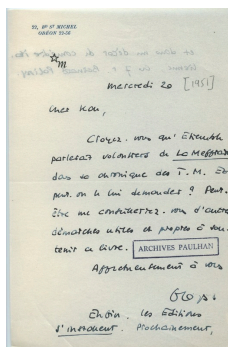 22, Bᵈ Sᵗ MICHEL
ODÉON 22-56
mercredi 20 [1951]
Cher ami,
Croyez-vous qu'Etiemble
parlerait volontiers de La
dans sa chronique des T. M. Et
peut-on le lui demander ? Peut-
être me conseillerez-vous d'autres
démarches utiles et propres à sou-
tenir ce livre.
ARCHIVES PAULHAN
Affectueusement à vous
Enfin, les Editions
prochainement,